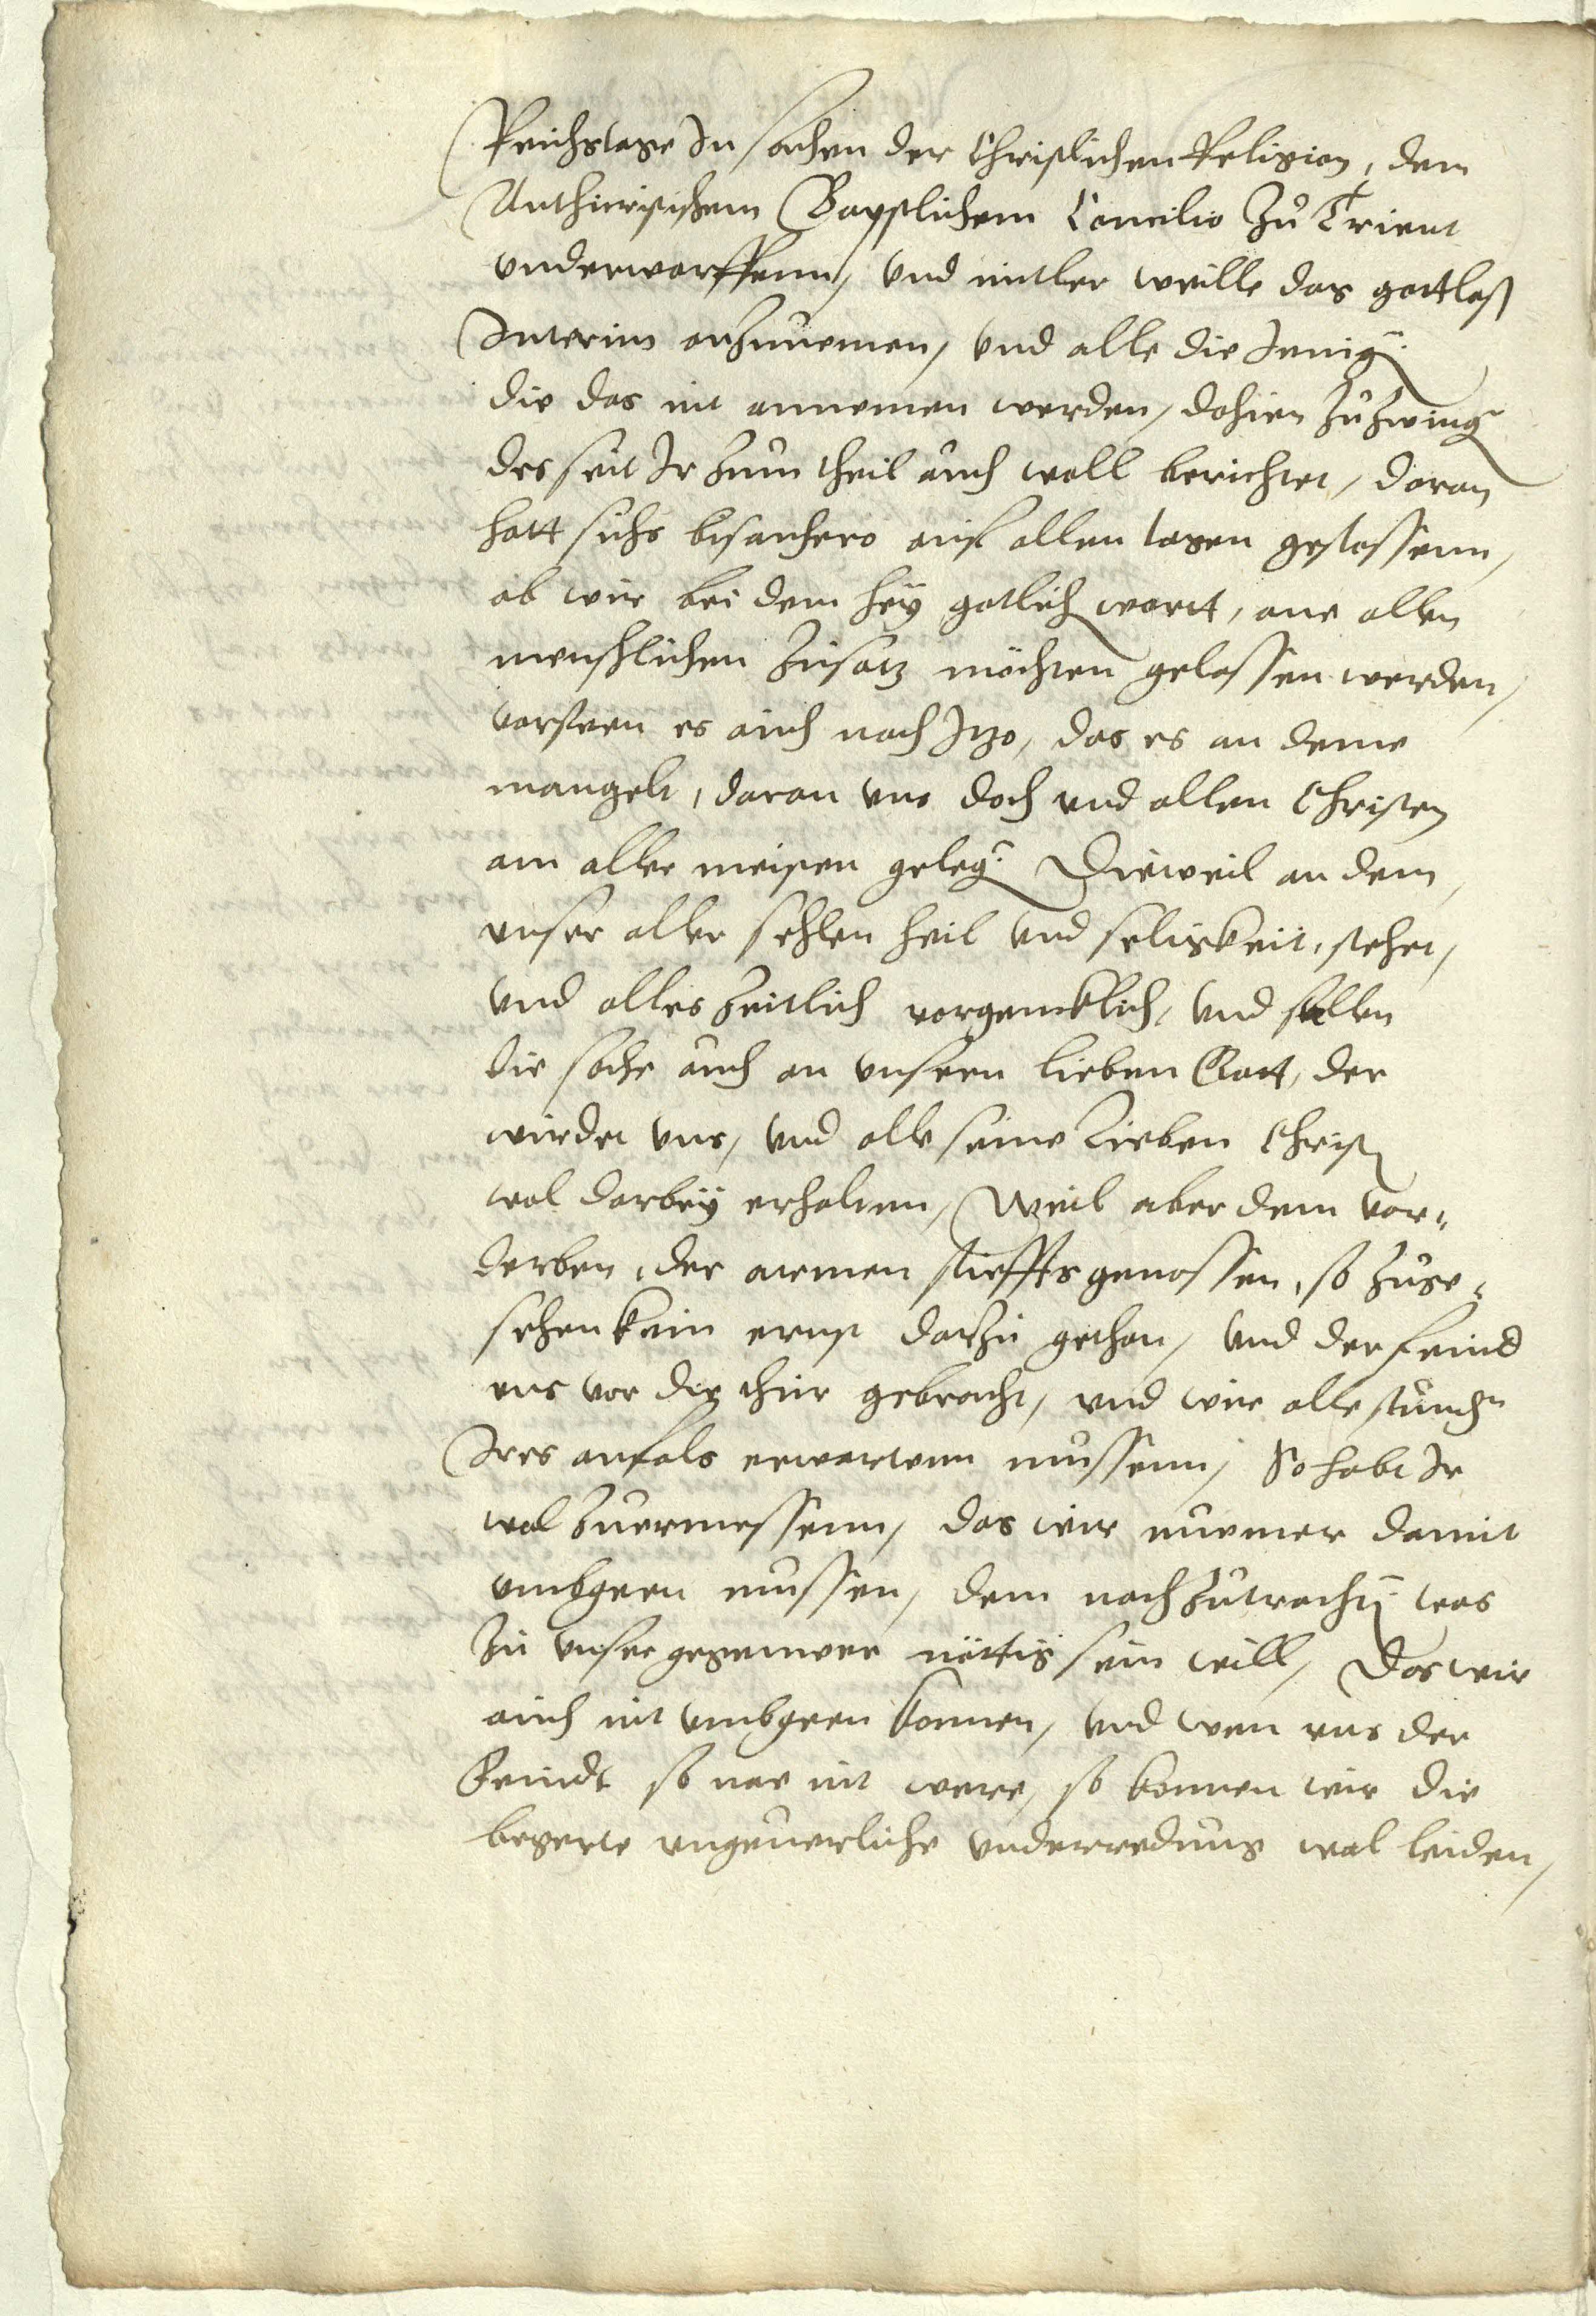 Reichstage In sachen der Christlichen Religion, dem
Anthicristischem Bapstlichem Concilio Zu Trient
underworffenn, und mitler weille das gottloß
Interim anzunemen, und alle die Jenig
die das nit annemen werden, dohien zu zwing
des seit Ir zum theil auch woll berichtet, doran
hatt sichs bisanhero auf allen tagen gestossenn,
ob wir bei dem hey gotlich wortt, ane allen
menschlichen zusatz möchten gelossen werden,
vorsteen es auch noch Itzo, das es an deme
mangelt, daran uns doch und allen Christen
am aller meisten geleg Dieweil an dem
unser aller sehlen heil und seligkeit, stehet,
und alles zeitlich vorgencklich, und stellen
die sache auch an unsern lieben Gott, der
wirdet uns, und alle seine Lieben Christ
wol darbey erhalten, Weil aber dem vor-
derben, der armen stieffts genossen, so zuge-
sehen kein ernst darzu gethan, und der feind
uns vor die thür gebracht, und wir alle stund
Ires anfals erwartenn mussenn, So habt Ir
wol zuermessenn, das wir nuemer damit
umbgeen mussen, dem noch zutracht was
zu unser gegenwer nöttig sein will, Das wir
auch nit umbgeen konnen, und wen uns der
Feindt so nae nit were, so konnen wir die
begerte ungeuerliche underredung wol leiden,